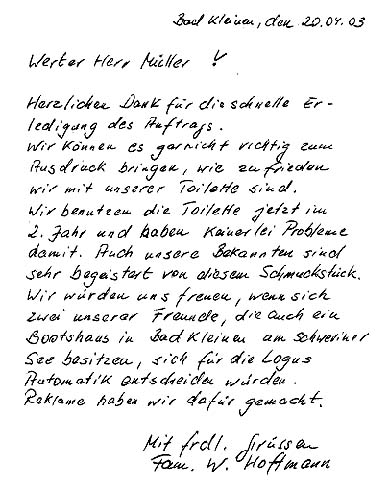 Bad Kleinen, den 20.04.03
Werter Herr Müller !
Herzlichen Dank für die schnelle Er-
ledigung des Auftrags.
Wir können es garnicht richtig zum
Ausdruck bringen, wie zufrieden
wir mit unserer Toilette sind.
Wir benutzen die Toilette jetzt im
2. Jahr und haben keinerlei Probleme
damit. Auch unsere Bekannten sind
sehr begeistert von diesem Schmuckstück.
Wir würden uns freuen, wenn sich
zwei unserer Freunde, die auch ein
Bootshaus in Bad Kleinen am Schweriner
See besitzen, sich für die Logus
Automatik entscheiden würden.
Reklame haben wir dafür gemacht.
Mit frdl. Grüssen
Fam. W. Hoffmann